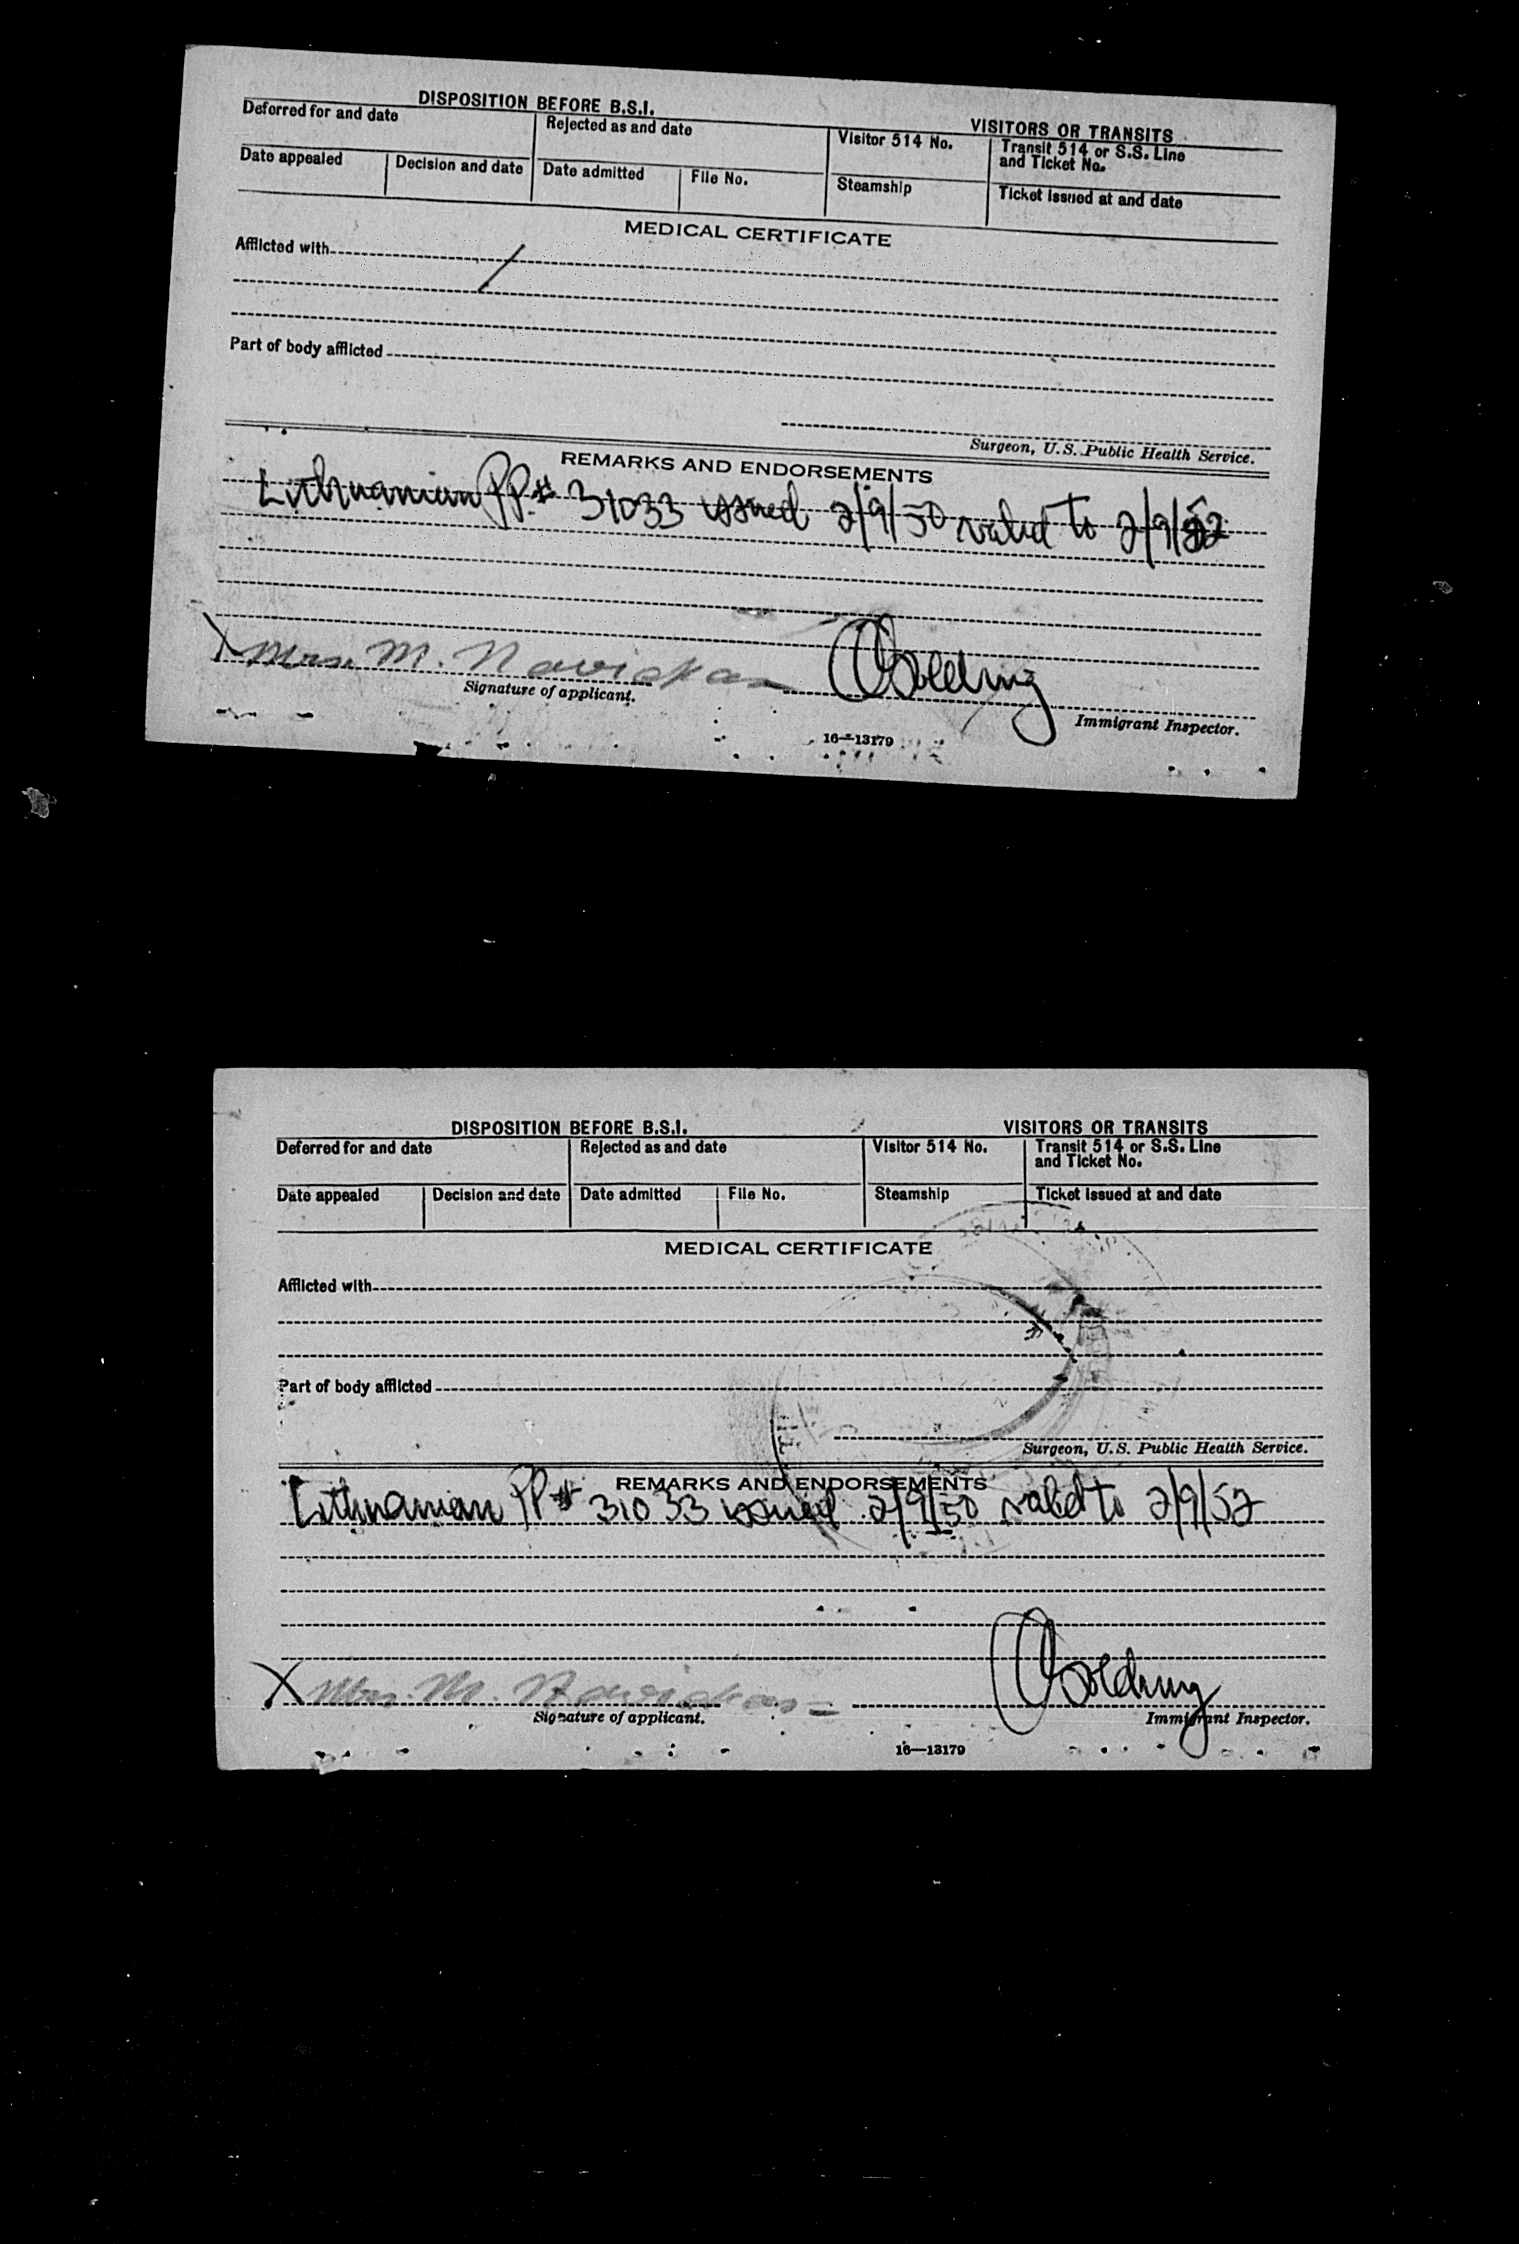 DISPOSITION BEFORE B.S.I.
VISITORS OR TRANSITS
Deferred for and date
Rejected as and date
Visitor 514 No.
Transit 514 or S.S. Line
and Ticket No.
Date appealed
Decision and date
Date admitted
File No.
Steamship
Ticket issued at and date
MEDICAL CERTIFICATE
Afflicted with
Part of body afflicted
Surgeon, U.S. Public Health Service.
REMARKS AND ENDORSEMENTS
Lithuanian PP# 31033 issued 2/9/50 valid to 2/9/52
X Mrs. M. Navickas
Golding
Signature of applicant.
Immigrant Inspector.
16—13179
DISPOSITION BEFORE B.S.I.
VISITORS OR TRANSITS
Deferred for and date
Rejected as and date
Visitor 514 No.
Transit 514 or S.S. Line
and Ticket No.
Date appealed
Decision and date
Date admitted
File No.
Steamship
Ticket issued at and date
MEDICAL CERTIFICATE
Afflicted with
Part of body afflicted
Surgeon, U.S. Public Health Service.
REMARKS AND ENDORSEMENTS
Lithuanian PP# 31033 issued 2/9/50 valid to 2/9/52
X Mrs. M. Navickas
Golding
Signature of applicant.
Immigrant Inspector.
16—13179